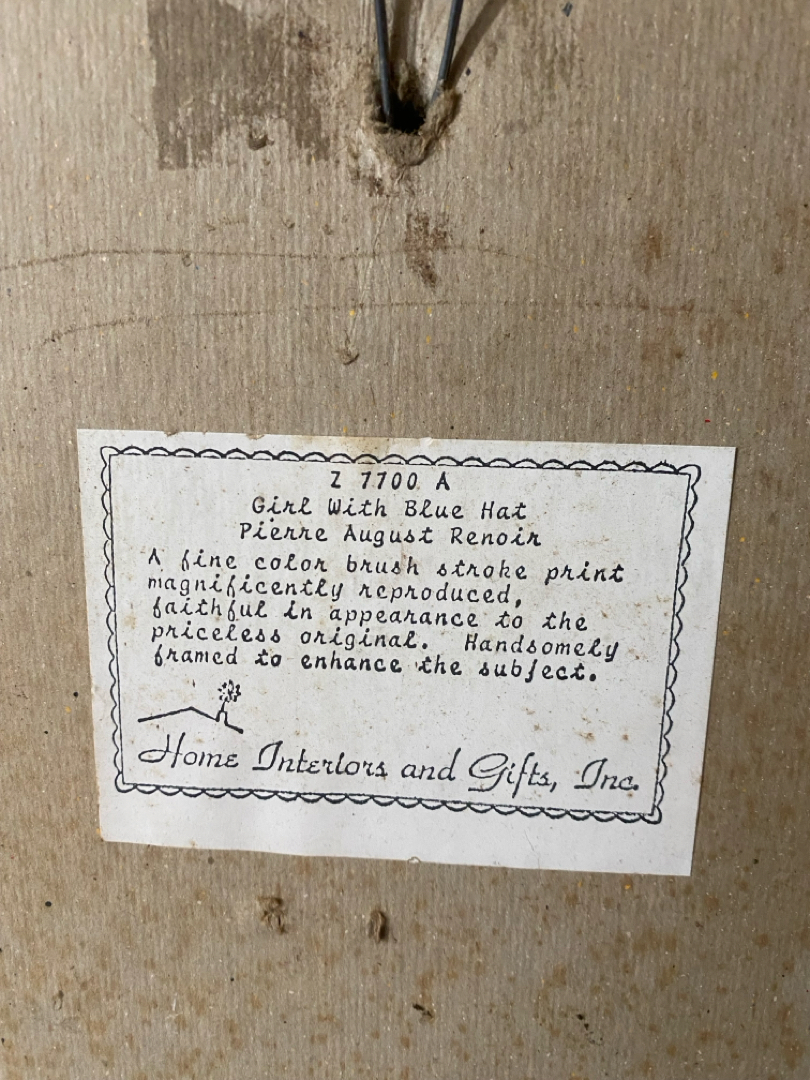 Z 7700 A
Girl With Blue Hat
Pierre August Renoir
A fine color brush stroke print
magnificently reproduced,
faithful in appearance to the
priceless original. Handsomely
framed to enhance the subject.
Home Interiors and Gifts, Inc.